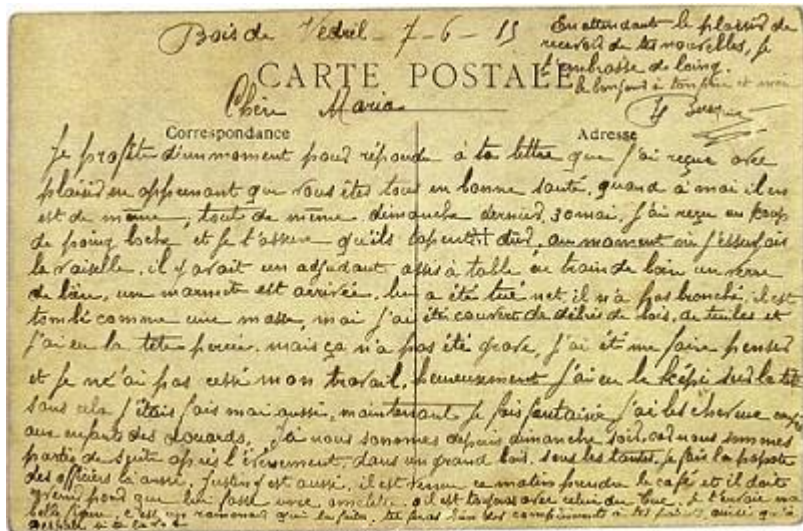 Bois de Vedril - 7-6-15
En attendant le plaisir de
recevoir de tes nouvelles, je
t'embrasse de loing.
le bonjour à ton père et mère
CARTE POSTALE
Chère Maria
Correspondance
Adresse
Je profite d'un moment pour répondre à ta lettre que j'ai reçue avec
plaisir en apprenant que vous êtes tous en bonne santé, quand à moi il en
est de même, tout de même dimanche dernier, 30 mai, j'ai reçu un
de poing et je t'assure qu'ils tapent dur, au moment où j'essuyais
la vaiselle, il y avait un adjudant assis à table en train de boire un verre
de bière, une marmite est arrivée, lui a été tué net, il n'a pas bronché, il est
tombé comme une masse, moi j'ai été couvert de débris de bois, de tuiles et
j'ai eu la tête percée, mais ça n'a pas été grave, j'ai été me faire penser
et je n'ai pas cessé mon travail, heureusement j'ai eu le képi sur la tête
sans cela j'étais moi aussi, maintenant je fais j'ai les cheveux
aux enfants des Ici nous sommes depuis dimanche soir, car nous sommes
partis de suite après l'évènement, dans un grand bois, sous les tantes, je fais la popote
des officiers là aussi. y est aussi, il est venu ce matin prendre le café et il doit
venir pour que lui fasse une omelette, il est toujours avec celui du je t'envoie ma
belle figure, c'est un qui l'a faite, tu feras bien des compliments à tes